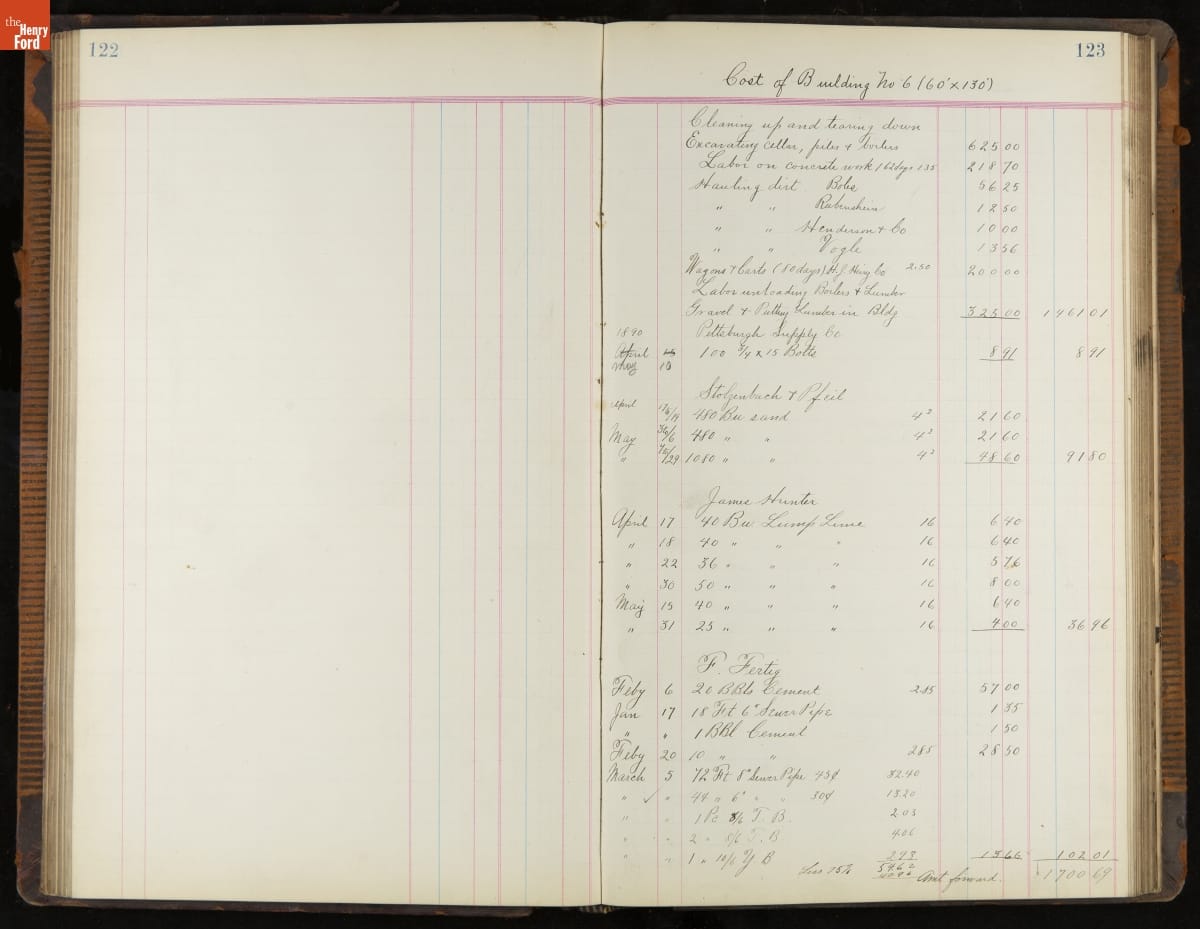 the
Henry
Ford
122
123
Cost of Building No 6 (60' x 130')
Cleaning up and tearing down
Excavating cellar, piles & boilers 625 00
Labor on concrete work 162 days 1 35 218 70
Hauling dirt Boles 56 25
" " Rubenshein 12 50
" " Henderson & Co 10 00
" " Vogle 13 56
Wagons & Carts (80 days) H. J. Heinz Co 2.50 200 00
Labor unloading Boilers & Lumber
Gravel & Putting Lumber in Bldg 325 00 1461 01
1890 Pittsburgh Supply Co
April 15 100 3/4 x 15 Bolts 8 91 8 91
May 10
Stolzenbach & Pfeil
April 480 Bu sand 4 2 21 60
May 480 " " 4 2 21 60
" 1080 " " 4 2 48 60 91 80
James Hunter
April 17 40 Bu Lump Lime 16 6 40
" 18 40 " " " 16 6 40
" 22 36 " " " 16 5 76
" 30 50 " " " 16 8 00
May 15 40 " " " 16 6 40
" 31 25 " " " 16 4 00 36 96
F. Fertig
Feby 6 20 BBls Cement 2 85 57 00
Jan 17 18 Ft 6" Sewer Pipe 1 35
" " 1 BBl Cement 1 50
Feby 20 10 " " 2 85 28 50
March 5 72 Ft 8" Sewer Pipe 45¢ 32.40
" ✓ " 44 " 6" " " 30¢ 13.20
" " 1 Pc 8/6 T. B. 2 03
" " 2 " 8/6 T. B 4 06
" " 1 " 10/6 Y B 2 93 13 66 102 01
Less 75% 54 62
40 96 Amt forward. 1700 69